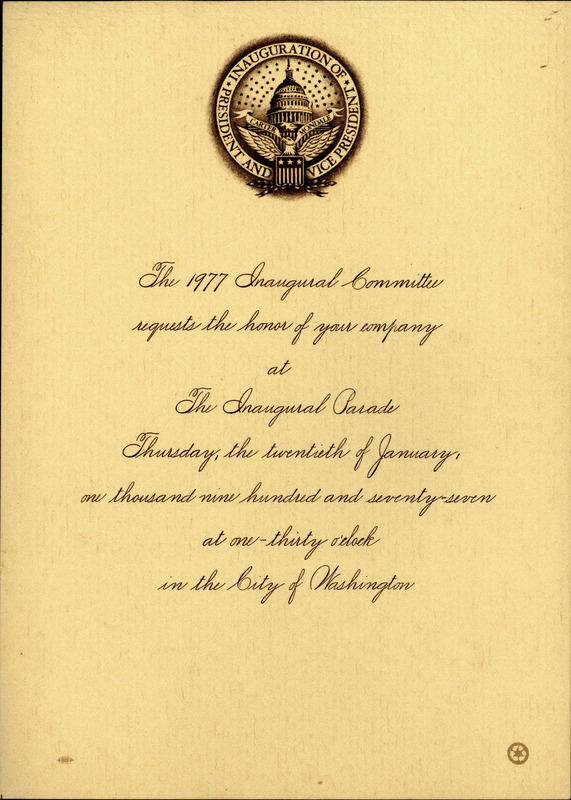 INAUGURATION OF
PRESIDENT AND VICE PRESIDENT
CARTER MONDALE
The 1977 Inaugural Committee
requests the honor of your company
at
The Inaugural Parade
Thursday, the twentieth of January,
one thousand nine hundred and seventy-seven
at one-thirty o'clock
in the City of Washington